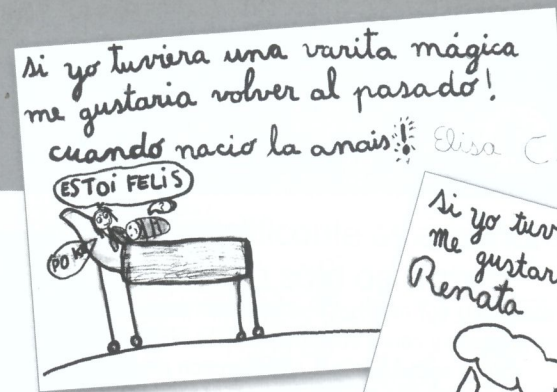 si yo tuviera una varita mágica
me gustaria volver al pasado!
cuando nacio la anais! Elisa C
ESTOi FELiS
PO
si yo tuv
me gustar
Renata